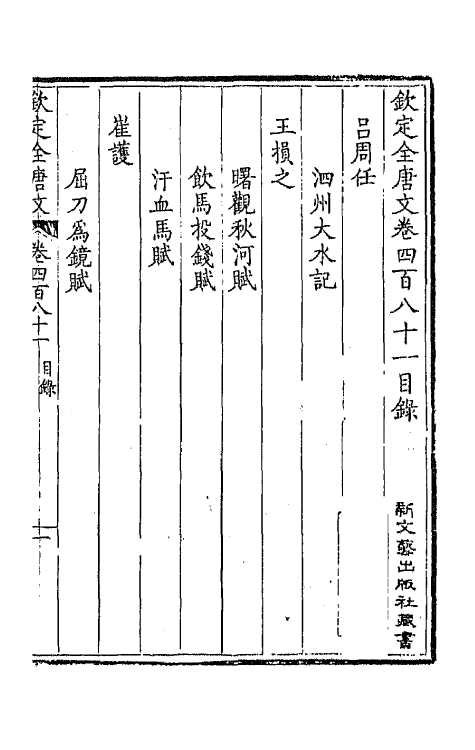 欽定全唐文卷四百八十一目錄
新文藝出版社藏書
呂周任
泗州大水記
王損之
曙觀秋河賦
飲馬投錢賦
汗血馬賦
崔護
屈刀爲鏡賦
欽定全唐文
卷四百八十一
目錄
一